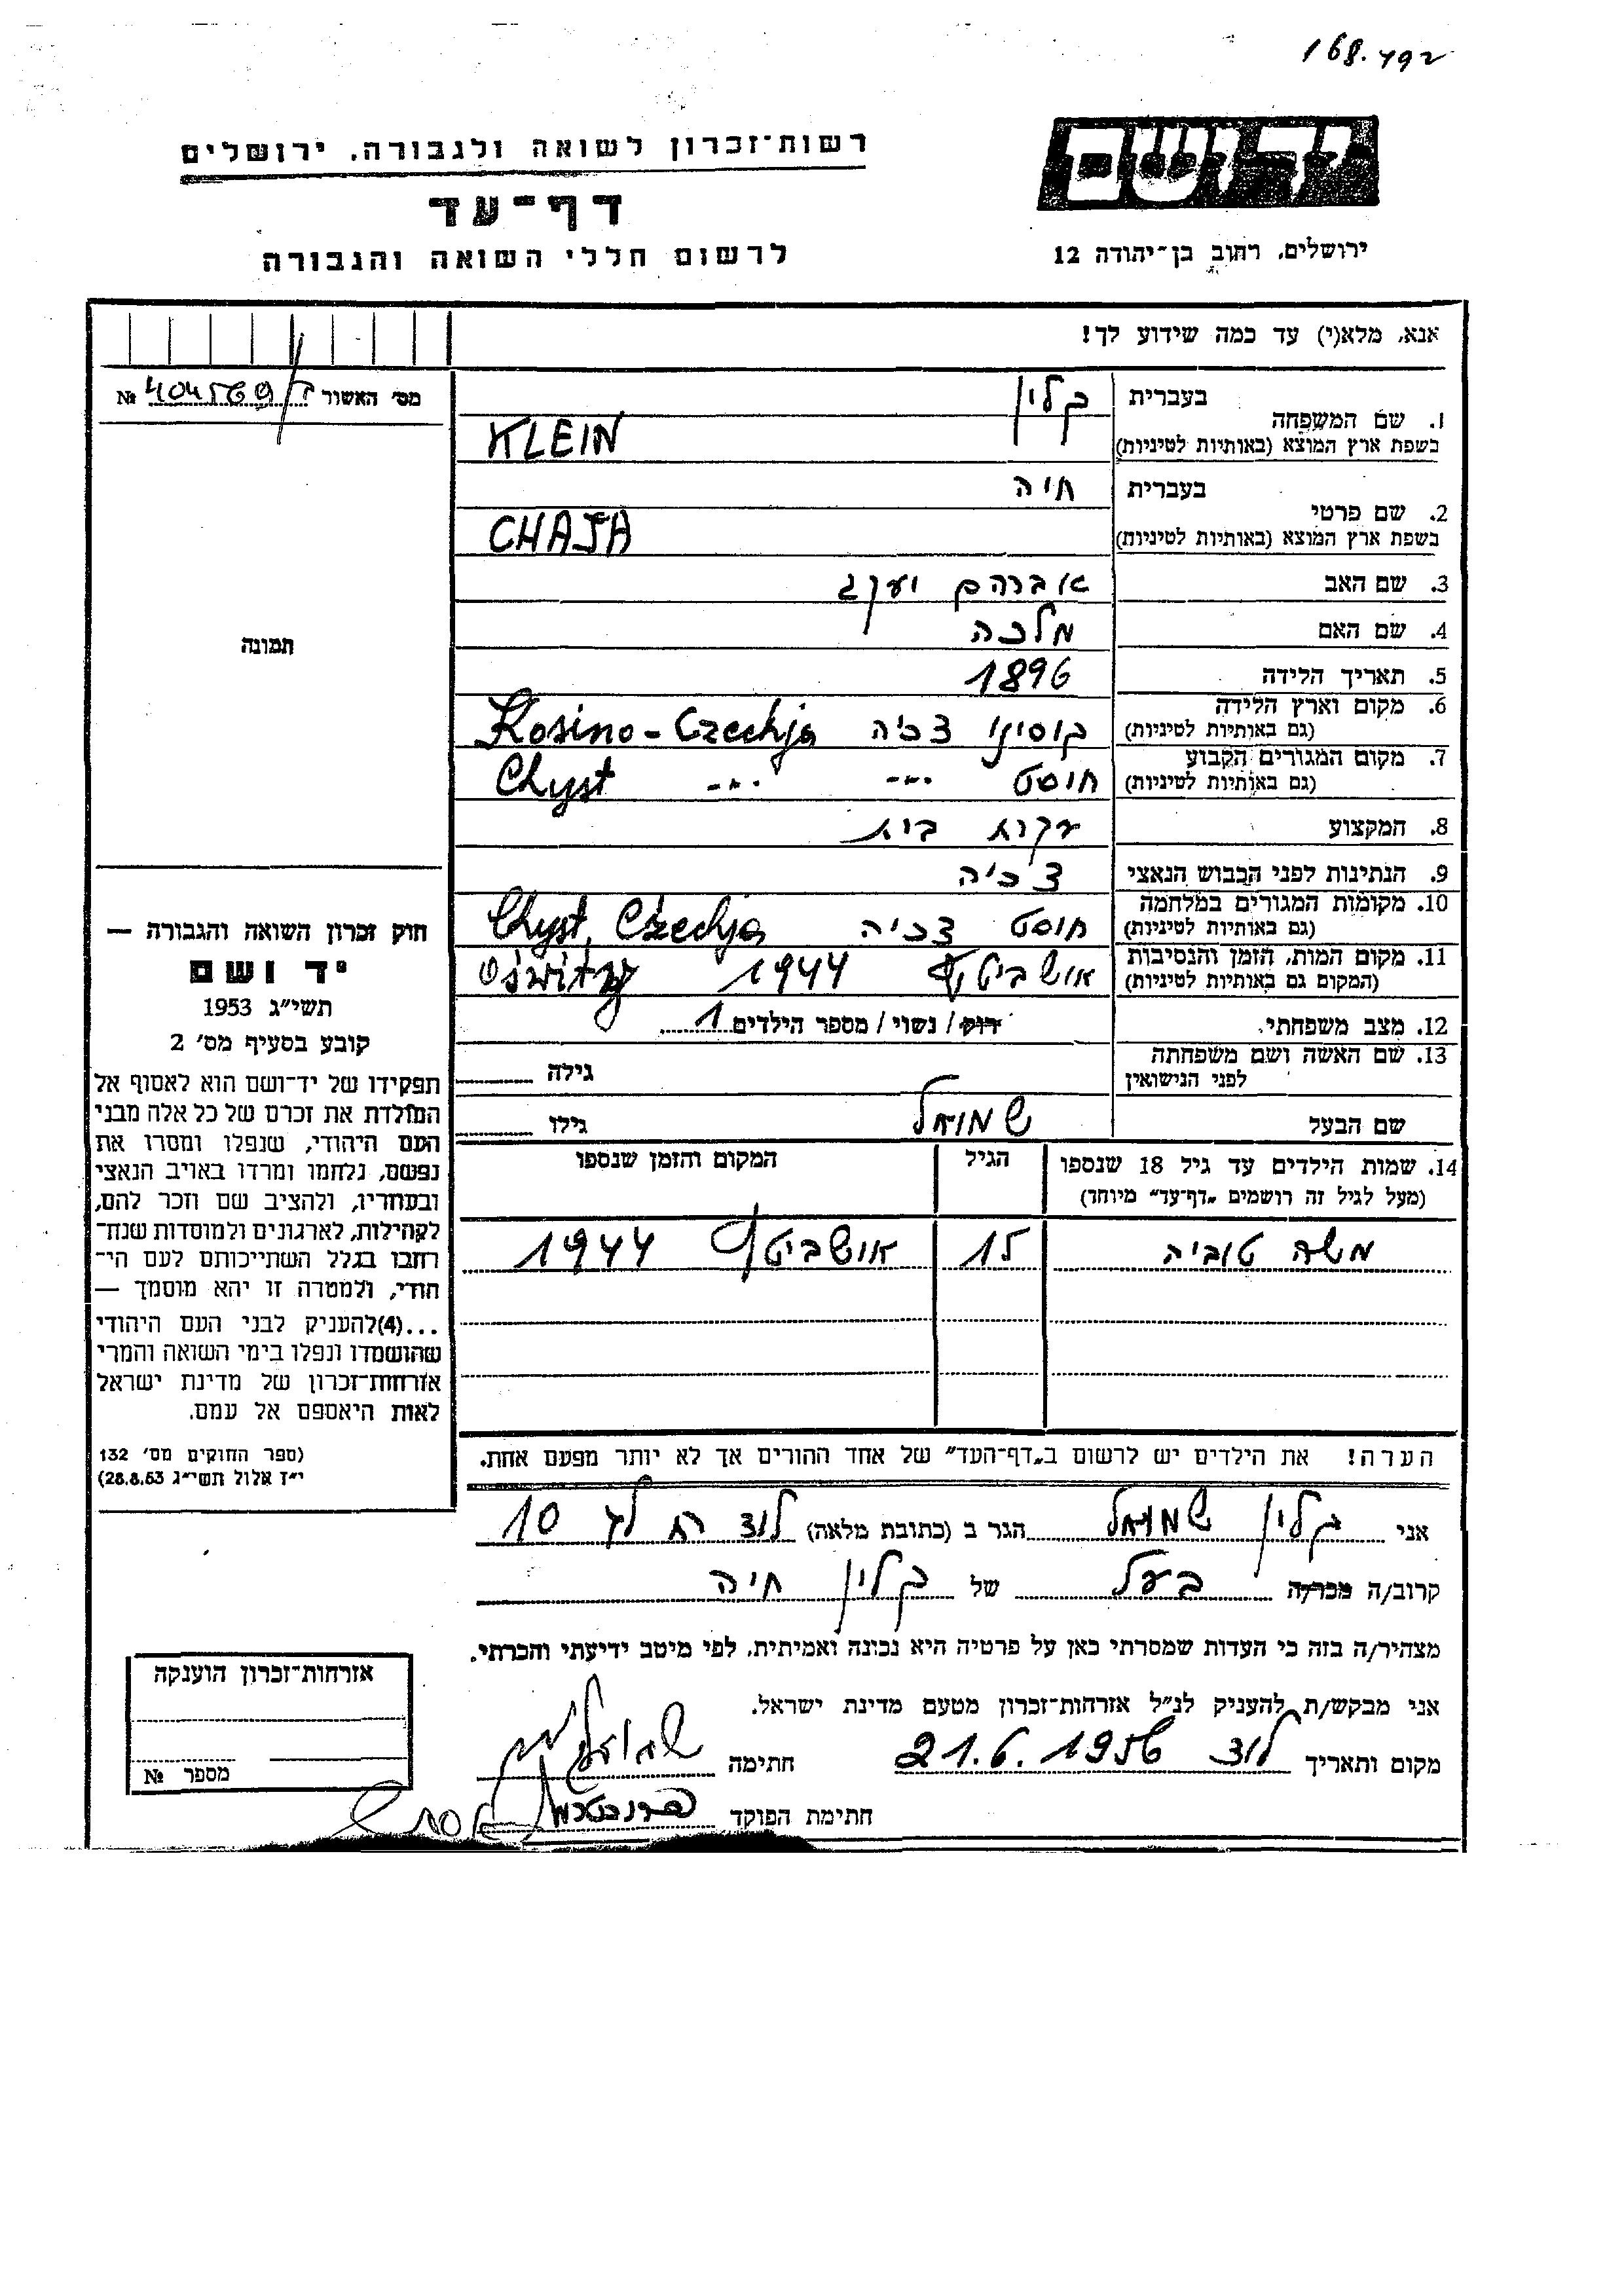 168.492
רשות־זכרון לשואה ולגבורה. ירושלים
דף־עד
לרשום חללי השואה והגבורה
יד ושם
ירושלים, רחוב בן־יהודה 12
אנא, מלא(י) עד כמה שידוע לך!
מס׳ האשור № 404569
1. שם המשפחה
בעברית קליין
בשפת ארץ המוצא (באותיות לטיניות) KLEIN
2. שם פרטי
בעברית חיה
בשפת ארץ המוצא (באותיות לטיניות) CHAJA
3. שם האב אברהם יעקב
4. שם האם מלכה
5. תאריך הלידה 1896
6. מקום וארץ הלידה
(גם באותיות לטיניות) קוסינו צכיה Kosino-Czechja
7. מקום המגורים הקבוע
(גם באותיות לטיניות) חוסט -"- -"- Chyst
8. המקצוע עקרת בית
9. הנתינות לפני הכבוש הנאצי צכיה
10. מקומות המגורים במלחמה
(גם באותיות לטיניות) חוסט צכיה Chyst, Czechja
11. מקום המות, הזמן והנסיבות
(המקום גם באותיות לטיניות) אושביטץ 1944 Oświtzy
12. מצב משפחתי. רווק / נשוי / מספר הילדים 1
13. שם האשה ושם משפחתה
לפני הנישואין גילה
שם הבעל שמואל גילו
14. שמות הילדים עד גיל 18 שנספו הגיל המקום והזמן שנספו
(מעל לגיל זה רושמים „דף־עד״ מיוחד)
משה טוביה 15 אושביטץ 1944
הערה! את הילדים יש לרשום ב„דף־העד״ של אחד ההורים אך לא יותר מפעם אחת.
תמונה
חוק זכרון השואה והגבורה —
יד ושם
תשי״ג 1953
קובע בסעיף מס׳ 2
תפקידו של יד־ושם הוא לאסוף אל
המולדת את זכרם של כל אלה מבני
העם היהודי, שנפלו ומסרו את
נפשם, נלחמו ומרדו באויב הנאצי
ובעוזריו, ולהציב שם וזכר להם,
לקהילות, לארגונים ולמוסדות שנח־
רחבו בגלל השתייכותם לעם הי־
הודי, ולמטרה זו יהא מוסמך —
...(4)להעניק לבני העם היהודי
שהושמדו ונפלו בימי השואה והמרי
אזרחות־זכרון של מדינת ישראל
לאות היאספם אל עמם.
(ספר החוקים מס׳ 132
י״ז אלול תשי״ג 28.8.53)
אני קליין שמואל הגר ב (כתובת מלאה) לוד 10
קרוב/ה מכר/ה בעל של קליין חיה
מצהיר/ה בזה כי העדות שמסרתי כאן על פרטיה היא נכונה ואמיתית, לפי מיטב ידיעתי והכרתי.
אני מבקש/ת להעניק לנ״ל אזרחות־זכרון מטעם מדינת ישראל.
מקום ותאריך לוד 21.6.1956 חתימה
חתימת הפוקד
אזרחות־זכרון הוענקה
מספר №